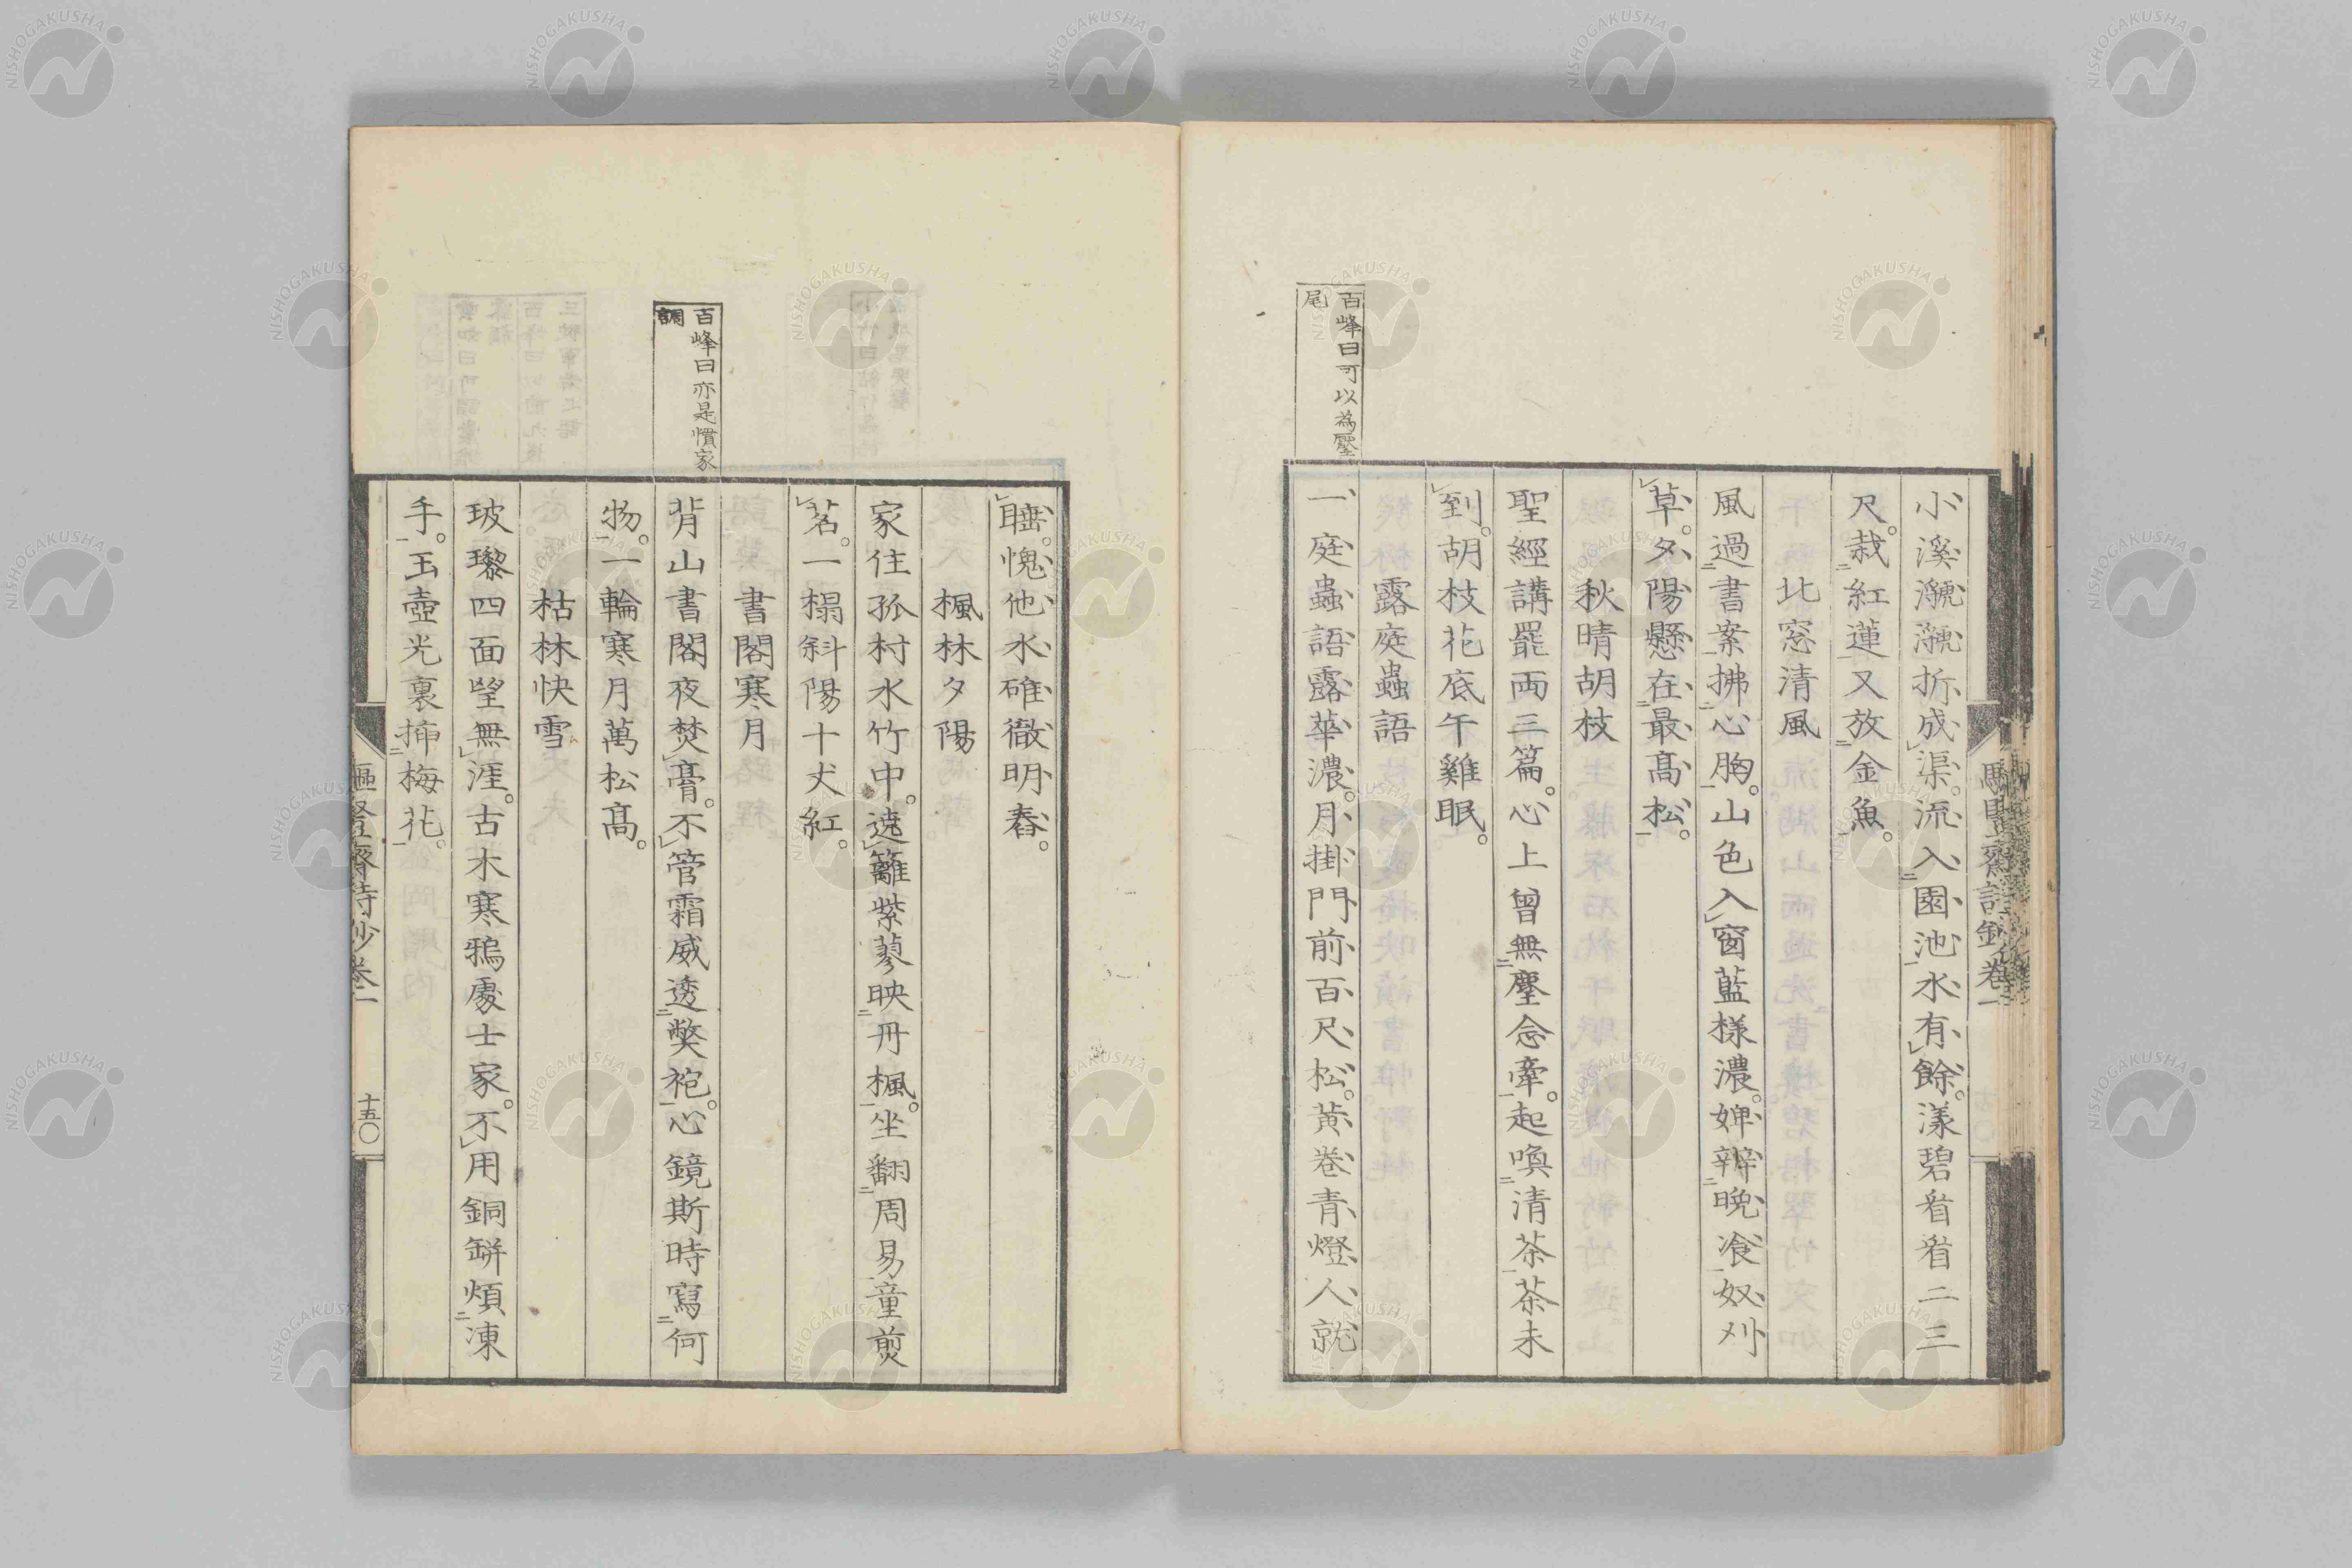 小溪瀧瀧折成渠。流入園池水有餘。漾碧看看二三
尺。栽紅蓮又放金魚。
北窓清風
風過書案拂心胸。山色入窗藍樣濃。婢辦晩飡奴刈
草。夕陽懸在最髙松。
秋晴胡枝
聖經講罷両三篇。心上曾無塵念牽。起喚清茶茶未
到。胡枝花底午雞眠。
露庭蟲語
百峰曰可以為壓
尾
一庭蟲語露華濃。月掛門前百尺松。黄卷青燈人就
睡。愧他水碓徹明舂。
楓林夕陽
家住孤村水竹中。遶籬紫蓼映丹楓。坐翻周易童煎
茗。一榻斜陽十丈紅。
書閣寒月
百峰曰亦是慣家
調
背山書閣夜焚膏。不管霜威透獘袍。心鏡斯時寫何
物。一輪寒月萬松髙。
枯林快雪
玻瓈四面望無涯。古木寒鴉處士家。不用銅缾煩凍
手。玉壺光裏挿梅花。
齋詩鈔卷一
十五〇